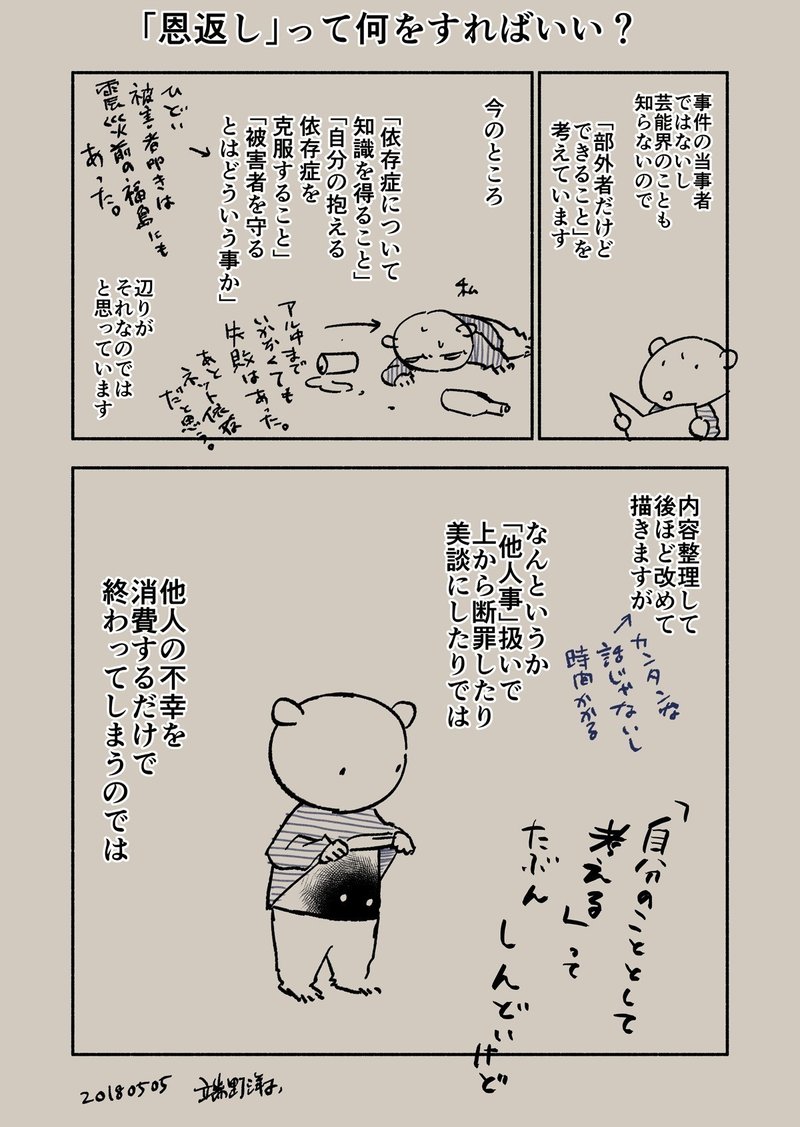 「恩返し」って何をすればいい？
事件の当事者
ではないし
芸能界のことも
知らないので
「部外者だけど
できること」を
考えています
今のところ
「依存症について
知識を得ること」
「自分の抱える
依存症を
克服すること」
「被害者を守る
とはどういう事か」
ひどい
被害者叩きは
震災前の福島にも
あった。
私
アル中まで
いかなくても
失敗はあった。
あとネット依存
だと思う。
辺りが
それなのでは
と思っています
内容整理して
後ほど改めて
描きますが
カンタンな
話じゃないし
時間かかる
なんというか
「他人事」扱いで
上から断罪したり
美談にしたりでは
他人の不幸を
消費するだけで
終わってしまうのでは
「自分のこととして
考える」って
たぶん
しんどいけど
20180505
端野洋子